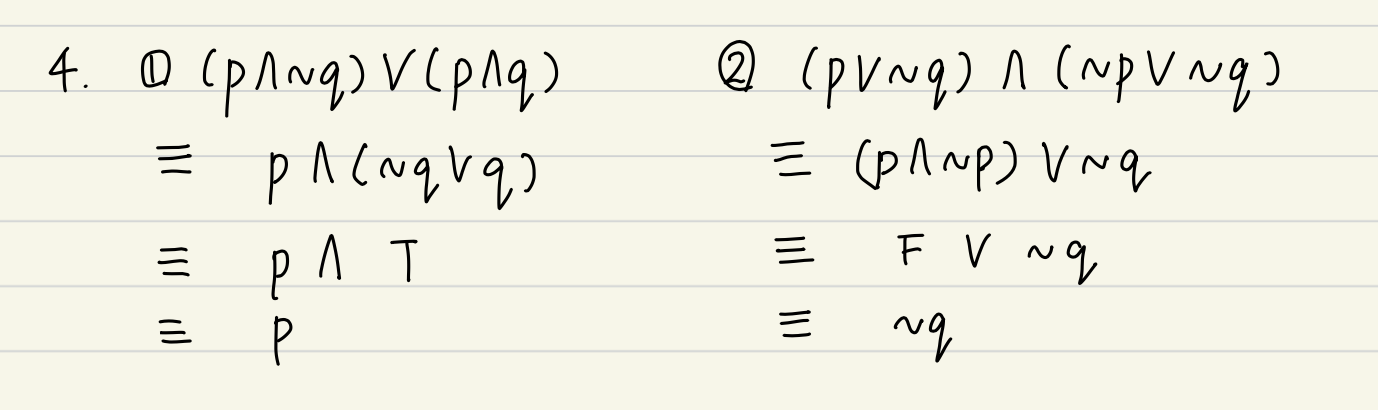 4. ① (p∧~q)∨(p∧q)
≡ p∧(~q∨q)
≡ p ∧ T
≡ p
② (p∨~q) ∧ (~p∨~q)
≡ (p∧~p)∨~q
≡ F ∨ ~q
≡ ~q